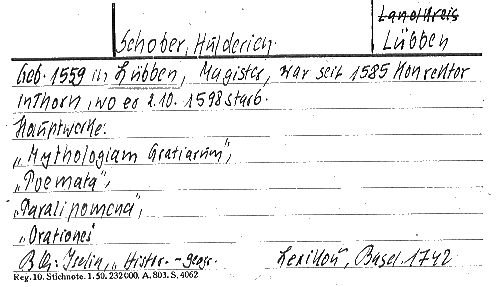 Land/Kreis
Schober, Hulderich
Lübben
Geb. 1559 in Lübben, Magister, war seit 1585 Konrektor
in Thorn, wo er 2.10.1598 starb.
Hauptwerke:
„Mythologiam Gratiarum",
„Poemata",
„Paralipomena",
„Orationes"
Blg: Iselin, „Histor.-geogr. Lexikon", Basel. 1742
Reg. 10. Stichnote. 1. 50. 232000. A. 803. S. 4062